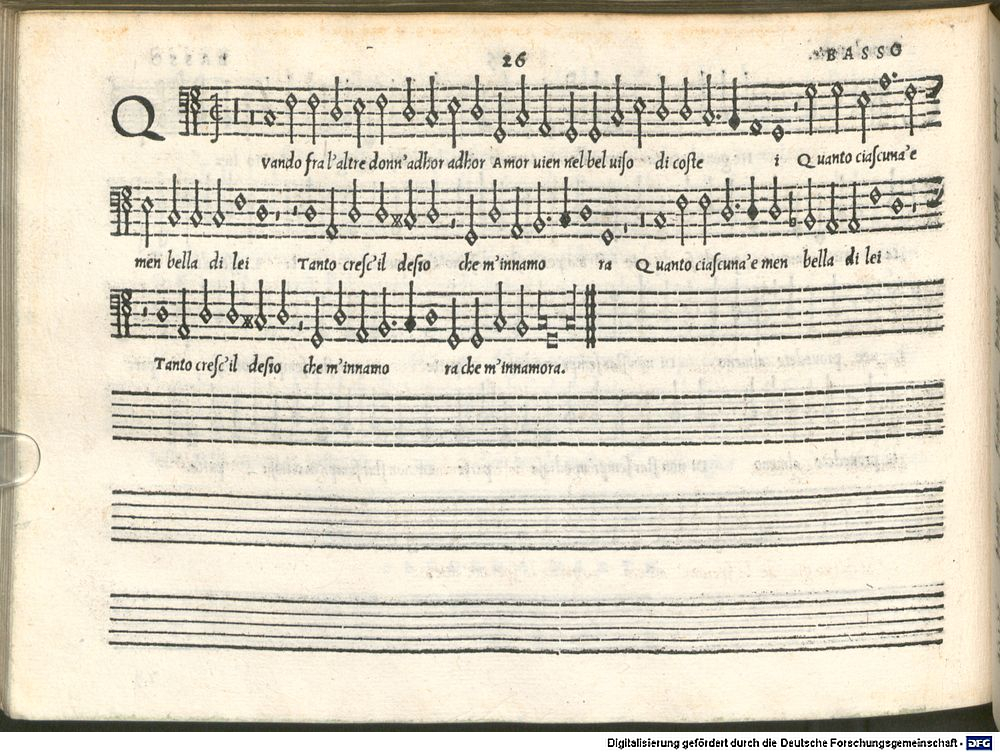 26 BASSO
Q
vando fra l'altre donn'adhor adhor Amor uien nel bel uiso di coste i Quanto ciascuna'e
men bella di lei Tanto cresc'il desio che m'innamo ra Quanto ciascuna'e men bella di lei
Tanto cresc'il desio che m'innamo ra che m'innamora.
Digitalisierung gefördert durch die Deutsche Forschungsgemeinschaft - DFG